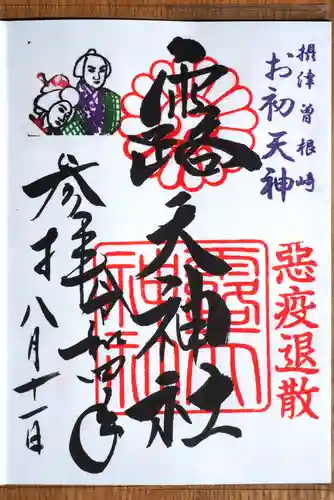 摂津曽根崎
お初天神
露天神社
惡疫退散
参拝
令和四年
八月十一日